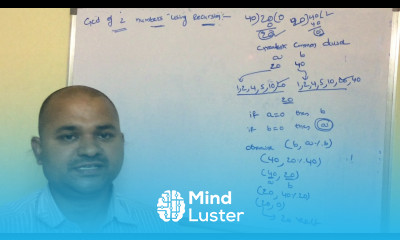 Gcd of 2 numbers using Recursion:-
40)20(0
20)40(2
40
0
Greatest common divisor
a b
20 40
1,2,4,5,10,20 1,2,4,5,10,20,40
20
if a=0 then b
if b=0 then a
otherwise (b, a%b)
(40, 20%40)
(40, 20)
a b
(20, 40%20)
(20, 0)
Mind
Luster